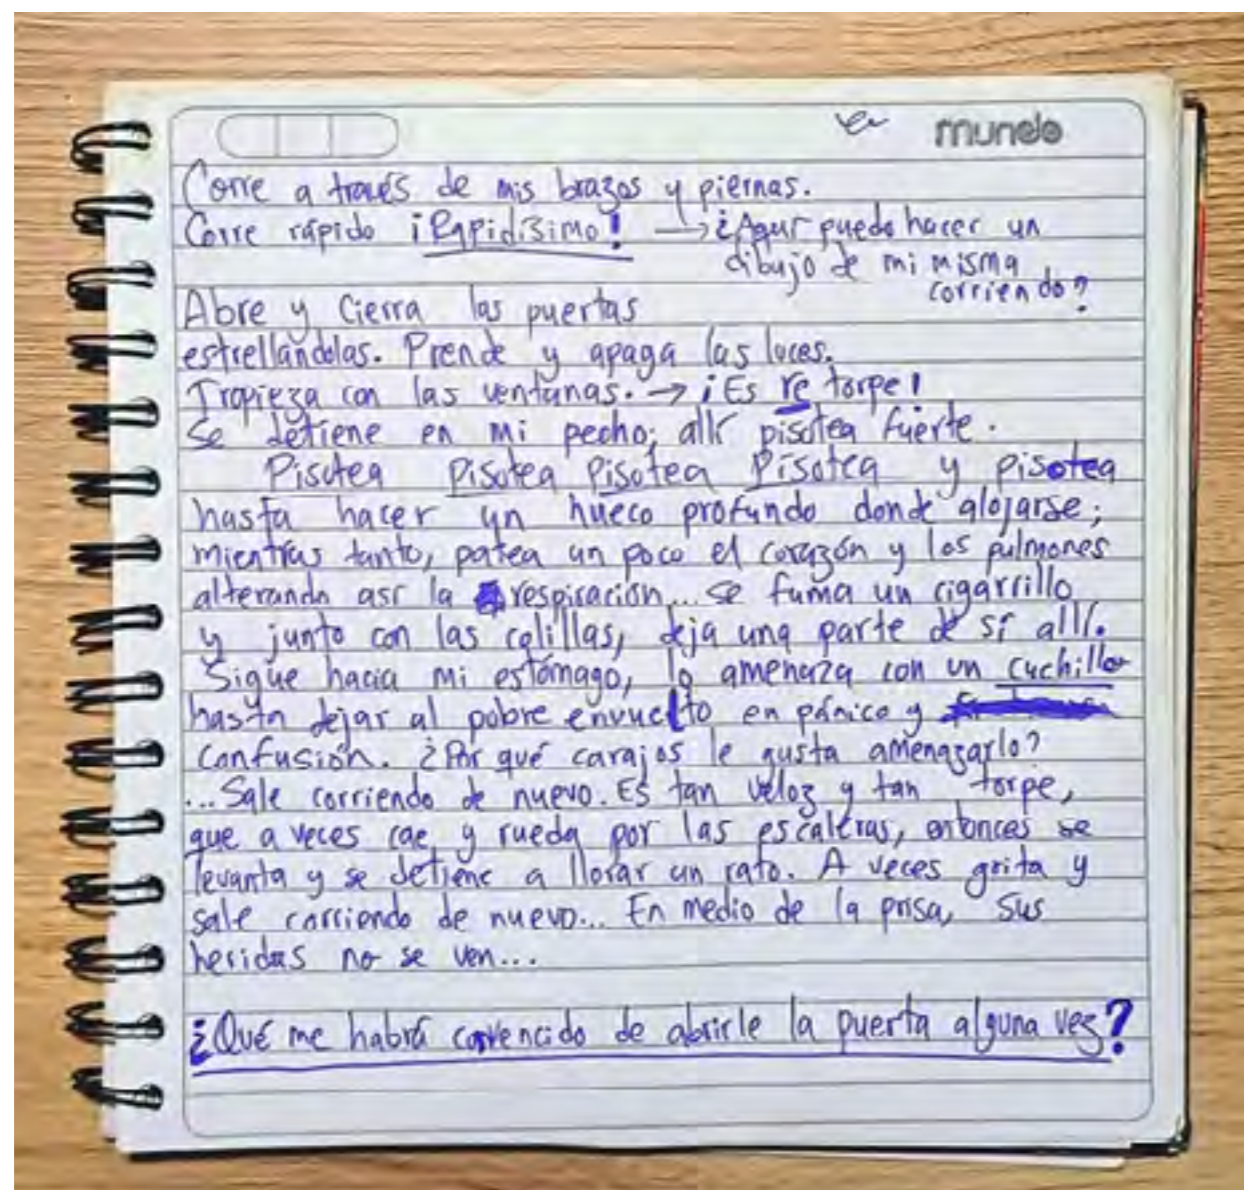 mundo
Corre a través de mis brazos y piernas.
Corre rápido ¡Rapidísimo! → ¿Aquí puedo hacer un
dibujo de mi misma
corriendo?
Abre y cierra las puertas
estrellándolas. Prende y apaga las luces.
Tropieza con las ventanas. → ¡Es re torpe!
Se detiene en mi pecho; allí pisotea fuerte.
Pisotea Pisotea Pisotea Pisotea y pisotea
hasta hacer un hueco profundo donde alojarse;
mientras tanto, patea un poco el corazón y los pulmones
alterando así la respiración... se fuma un cigarrillo
y junto con las colillas, deja una parte de sí allí.
Sigue hacia mi estómago, lo amenaza con un cuchillo
hasta dejar al pobre envuelto en pánico y
confusión. ¿Por qué carajos le gusta amenazarlo?
...Sale corriendo de nuevo. Es tan veloz y tan torpe,
que a veces cae y rueda por las escaleras, entonces se
levanta y se detiene a llorar un rato. A veces grita y
sale corriendo de nuevo... En medio de la prisa, sus
heridas no se ven...
¿Qué me habrá convencido de abrirle la puerta alguna vez?